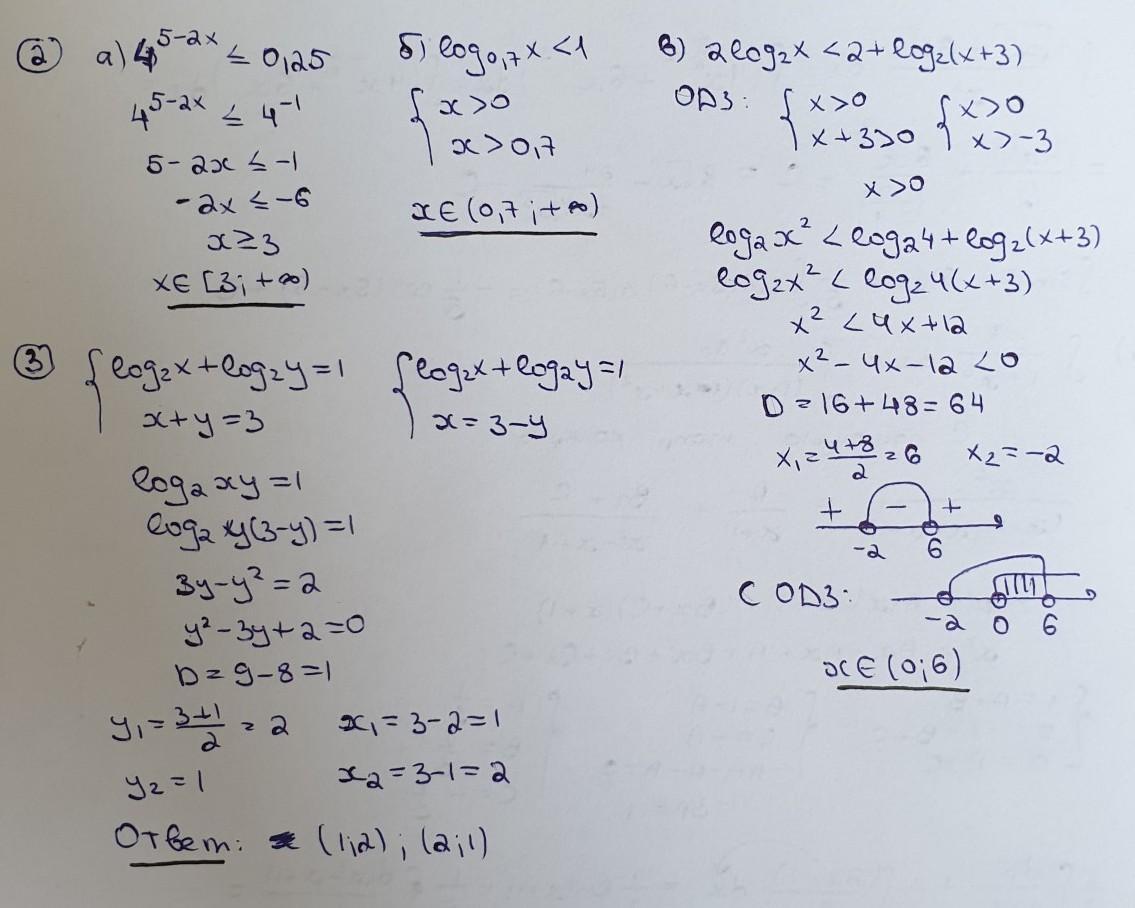 ② а) 4^{5-2x} ≤ 0,25
4^{5-2x} ≤ 4^{-1}
5-2x ≤ -1
-2x ≤ -6
x ≥ 3
x∈[3; +∞)
б) log_{0,7}x < 1
{ x > 0
x > 0,7
x∈(0,7; +∞)
в) 2log₂x < 2+log₂(x+3)
ОДЗ: { x>0 { x>0
x+3>0 x>-3
x>0
log₂x² < log₂4+log₂(x+3)
log₂x² < log₂4(x+3)
x² < 4x+12
x²-4x-12 < 0
D = 16+48 = 64
x₁ = (4+8)/2 = 6 x₂ = -2
+ - +
-2 6
С ОДЗ:
-2 0 6
x∈(0;6)
③ { log₂x+log₂y=1 { log₂x+log₂y=1
x+y=3 x=3-y
log₂xy=1
log₂y(3-y)=1
3y-y²=2
y²-3y+2=0
D=9-8=1
y₁=(3+1)/2=2 x₁=3-2=1
y₂=1 x₂=3-1=2
Ответ: (1;2); (2;1)